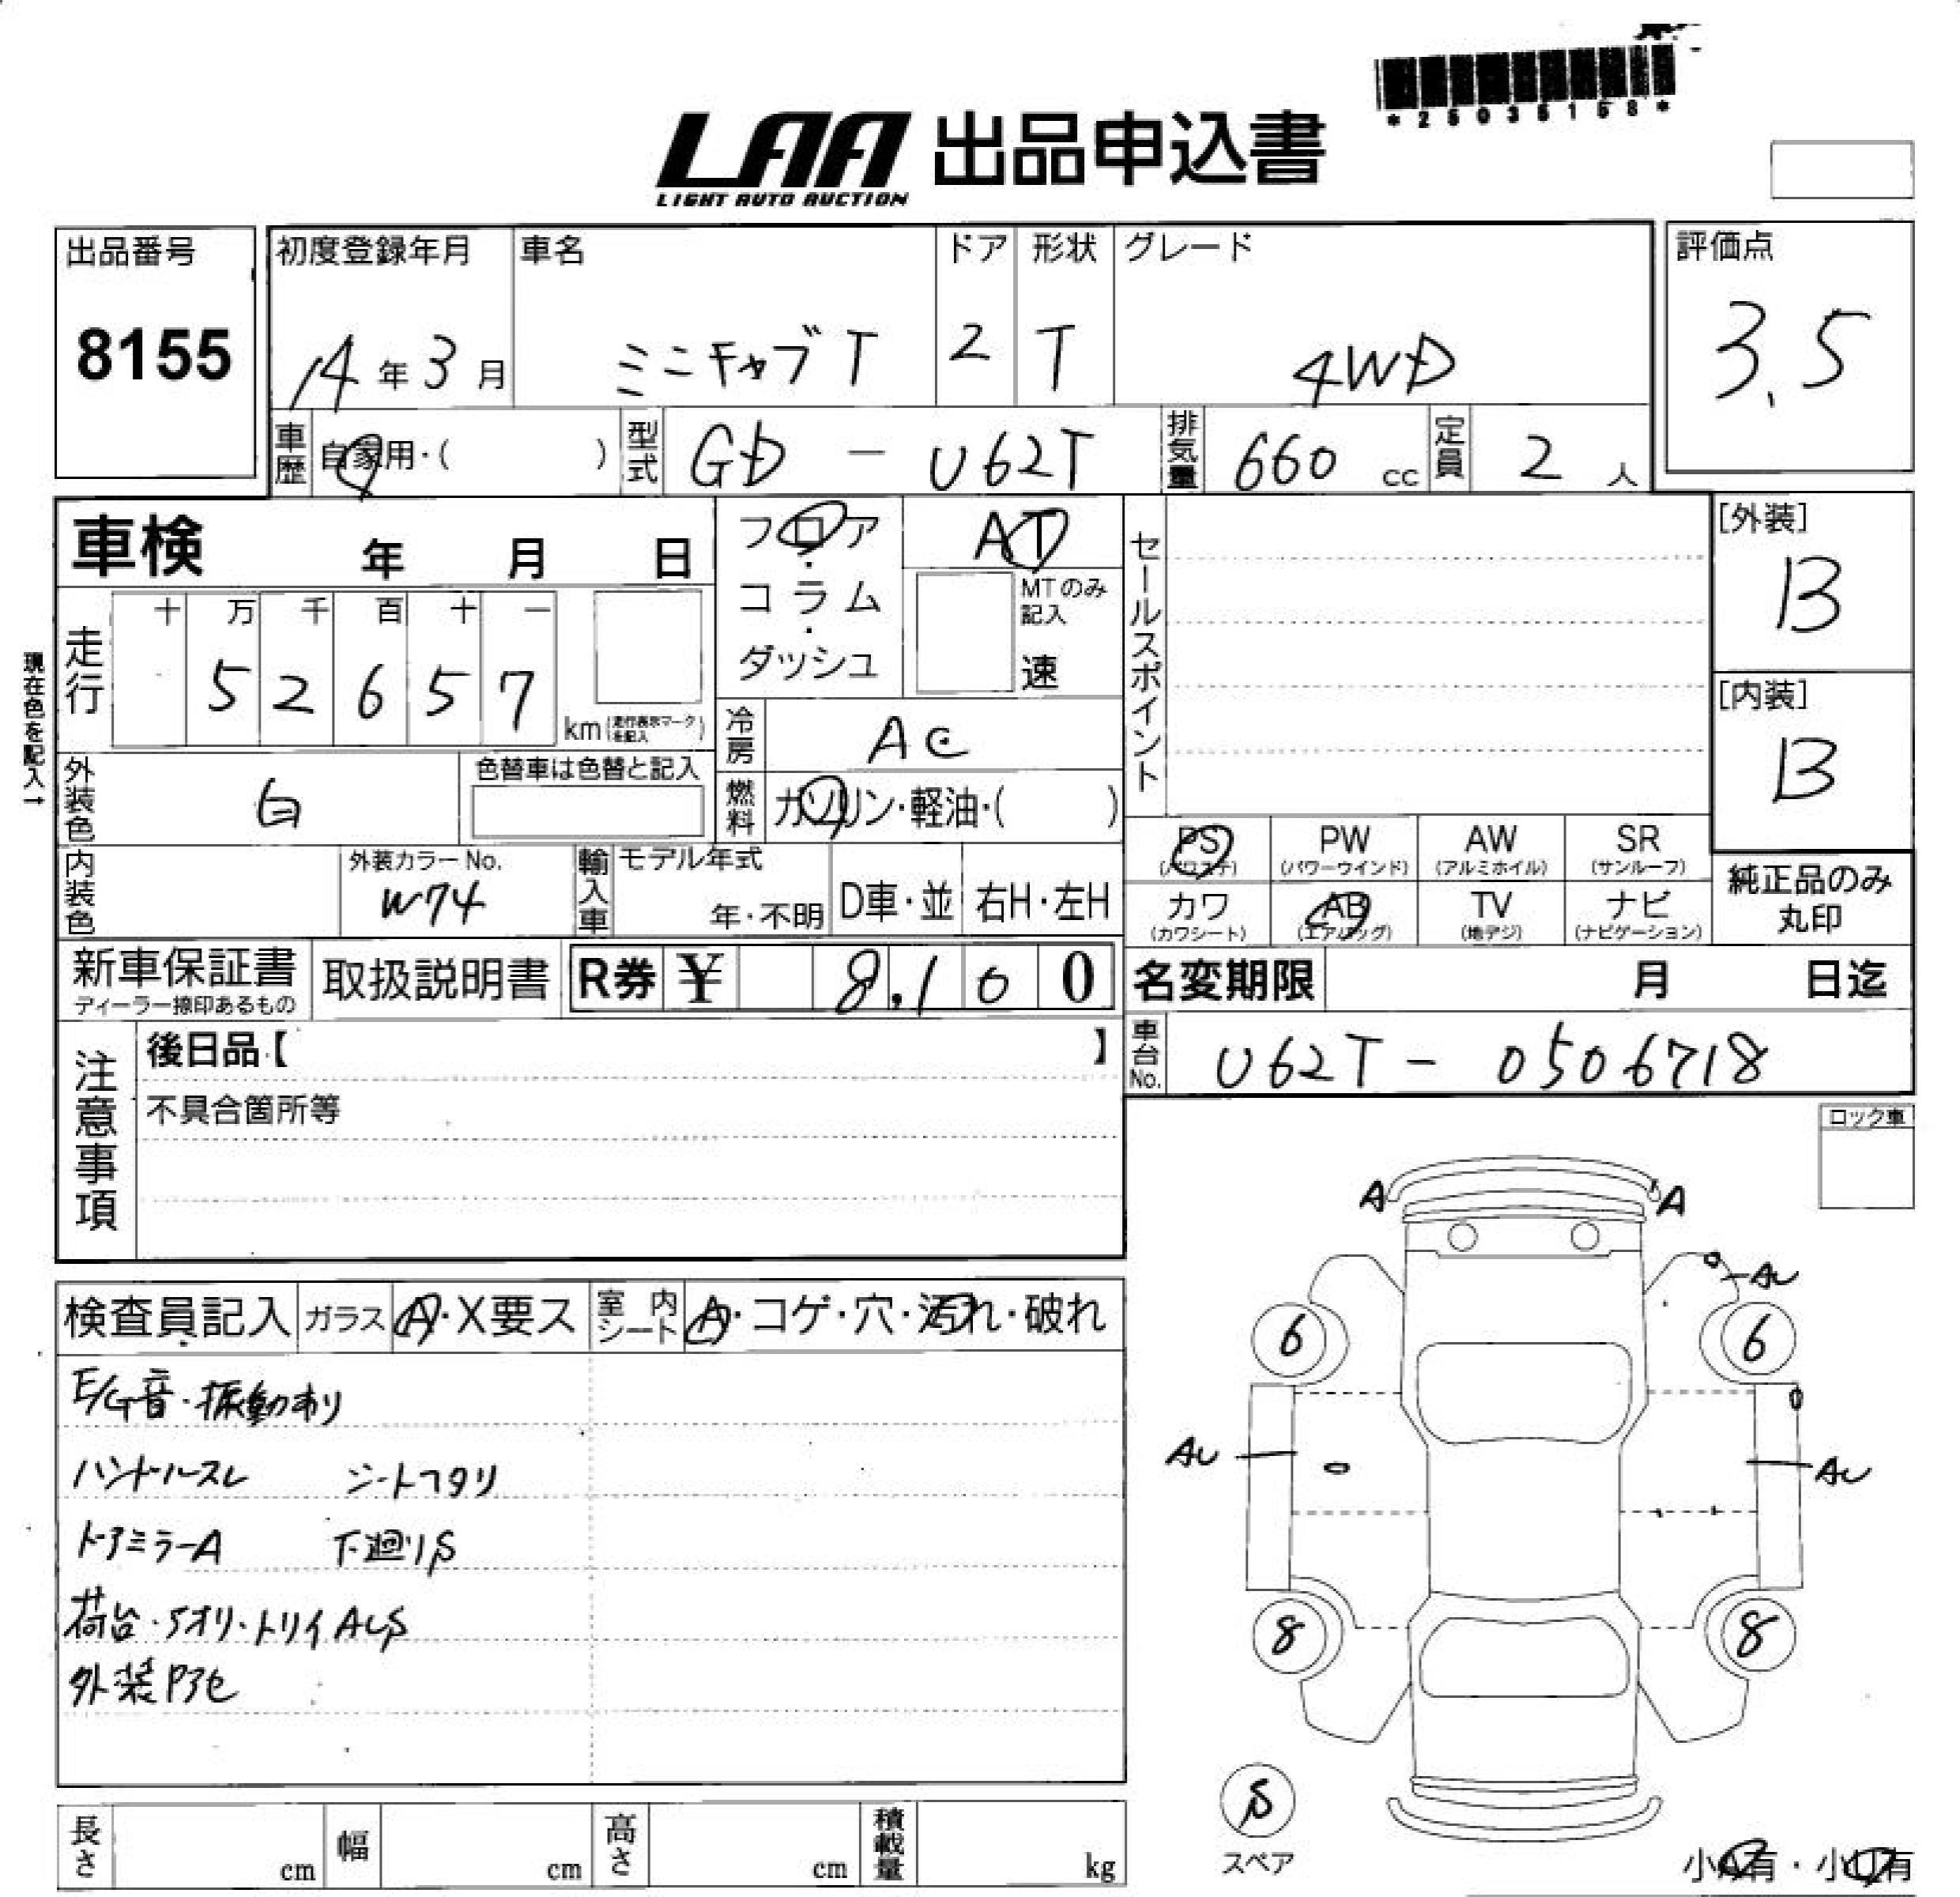 *25035158*
LAA 出品申込書
LIGHT AUTO AUCTION
出品番号
8155
初度登録年月
14年3月
車名
ミニキャブT
ドア
2
形状
T
グレード
4WD
評価点
3.5
車歴
自家用・( )
型式
GD - U62T
排気量
660 cc
定員
2 人
車検 年 月 日
フロア・コラム・ダッシュ
AT
MTのみ記入
速
セールスポイント
[外装]
B
[内装]
B
現在色を記入→
走行
十 万 千 百 十 一
5 2 6 5 7
km (走行表示マークを記入)
冷房
AC
外装色
白
色替車は色替と記入
燃料
ガソリン・軽油・( )
PS (パワステ)
PW (パワーウインド)
AW (アルミホイル)
SR (サンルーフ)
カワ (カワシート)
AB (エアバッグ)
TV (地デジ)
ナビ (ナビゲーション)
純正品のみ丸印
内装色
外装カラーNo.
W74
輸入車
モデル年式
年・不明
D車・並
右H・左H
新車保証書
ディーラー捺印あるもの
取扱説明書
R券 ¥ 8,100
名変期限 月 日迄
車台No.
U62T - 0506718
注意事項
後日品【 】
不具合箇所等
ロック車
検査員記入
ガラス A・X要ス
室内シート A・コゲ・穴・汚れ・破れ
E/G音・振動有り
ハンドルスレ シートヘタリ
ドアミラーA 下廻りS
荷台・アオリ・トリイ AUS
外装Pアセ
A A
AU
6 6
AU AU
8 8
S
スペア
小A有・小U有
長さ cm
幅 cm
高さ cm
積載量 kg